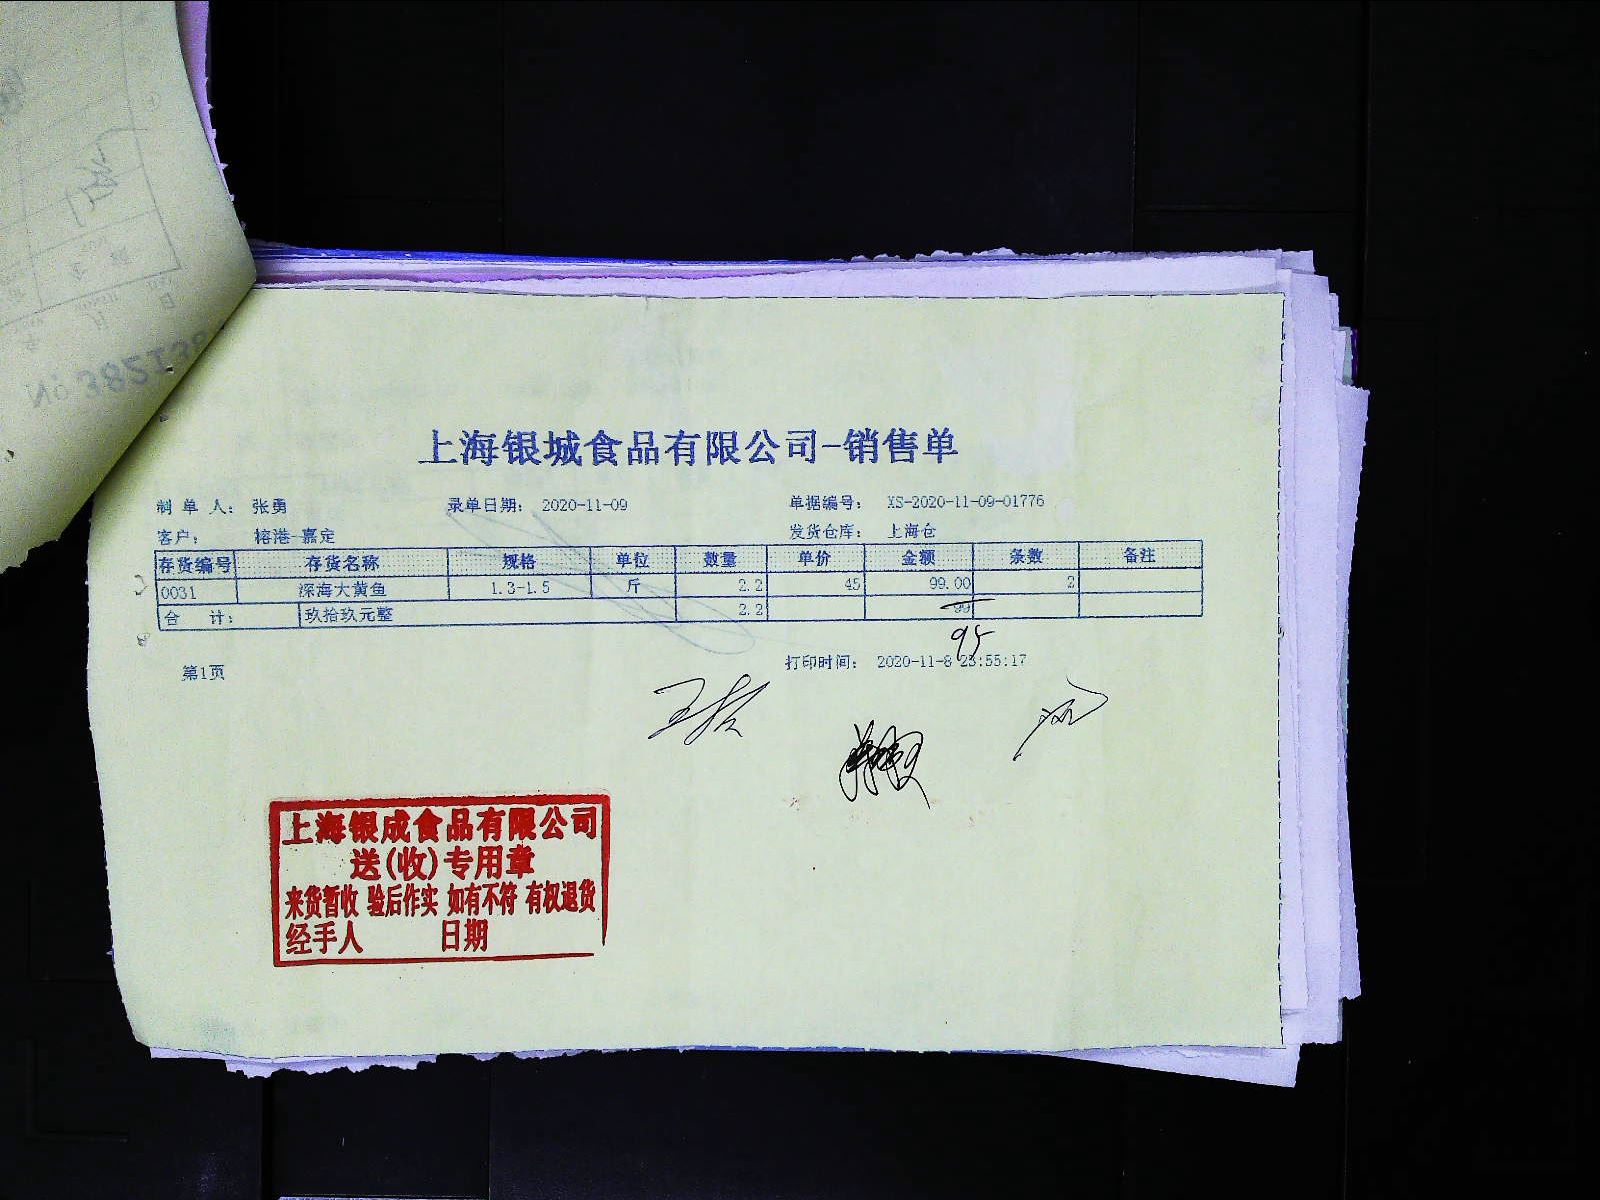 No 382138
上海银城食品有限公司-销售单
制 单 人： 张勇 录单日期： 2020-11-09 单据编号： XS-2020-11-09-01776
客户： 榕港-嘉定 发货仓库： 上海仓
存货编号 存货名称 规格 单位 数量 单价 金额 条数 备注
0031 深海大黄鱼 1.3-1.5 斤 2.2 45 99.00 2
合 计： 玖拾玖元整 2.2 99
95
第1页 打印时间： 2020-11-8 23:55:17
上海银成食品有限公司
送(收)专用章
来货暂收 验后作实 如有不符 有权退货
经手人 日期